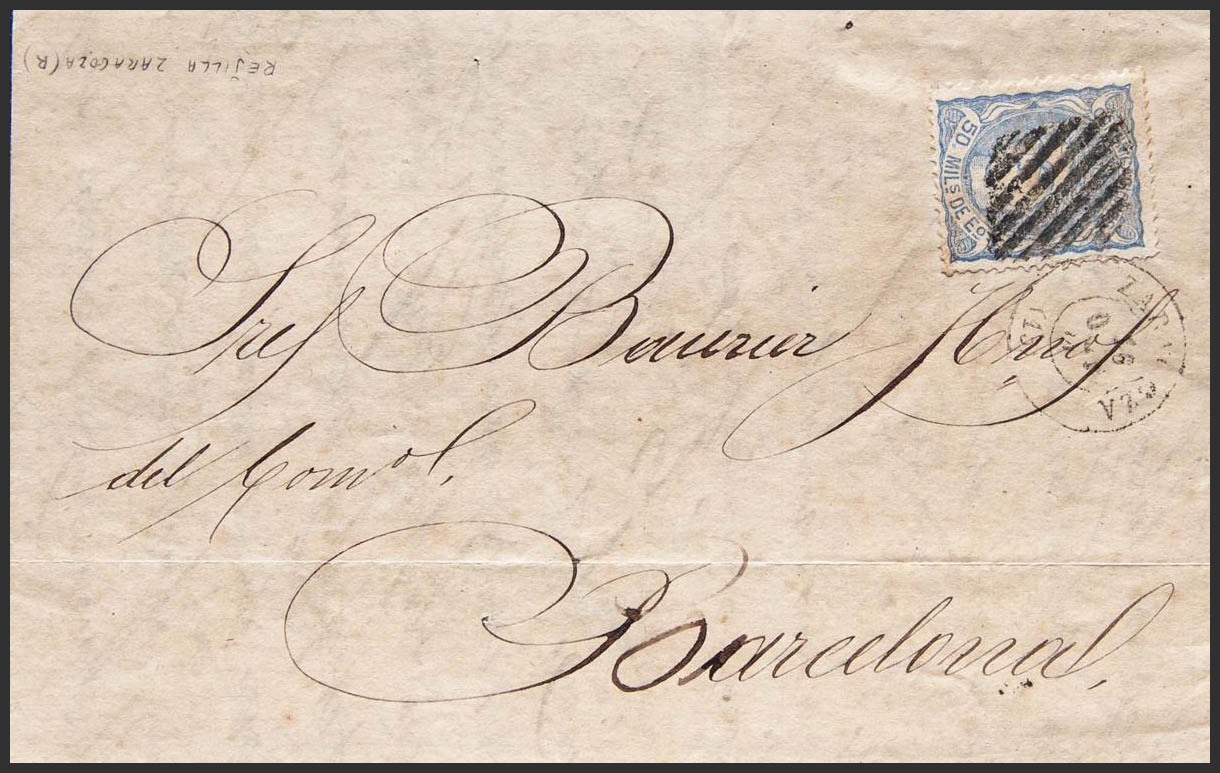 REJILLA ZARAGOZA (R)
50 MILS. DE Eo
ZARAGOZA
Sres Bourier Hnos
del Comol.
Barcelona.